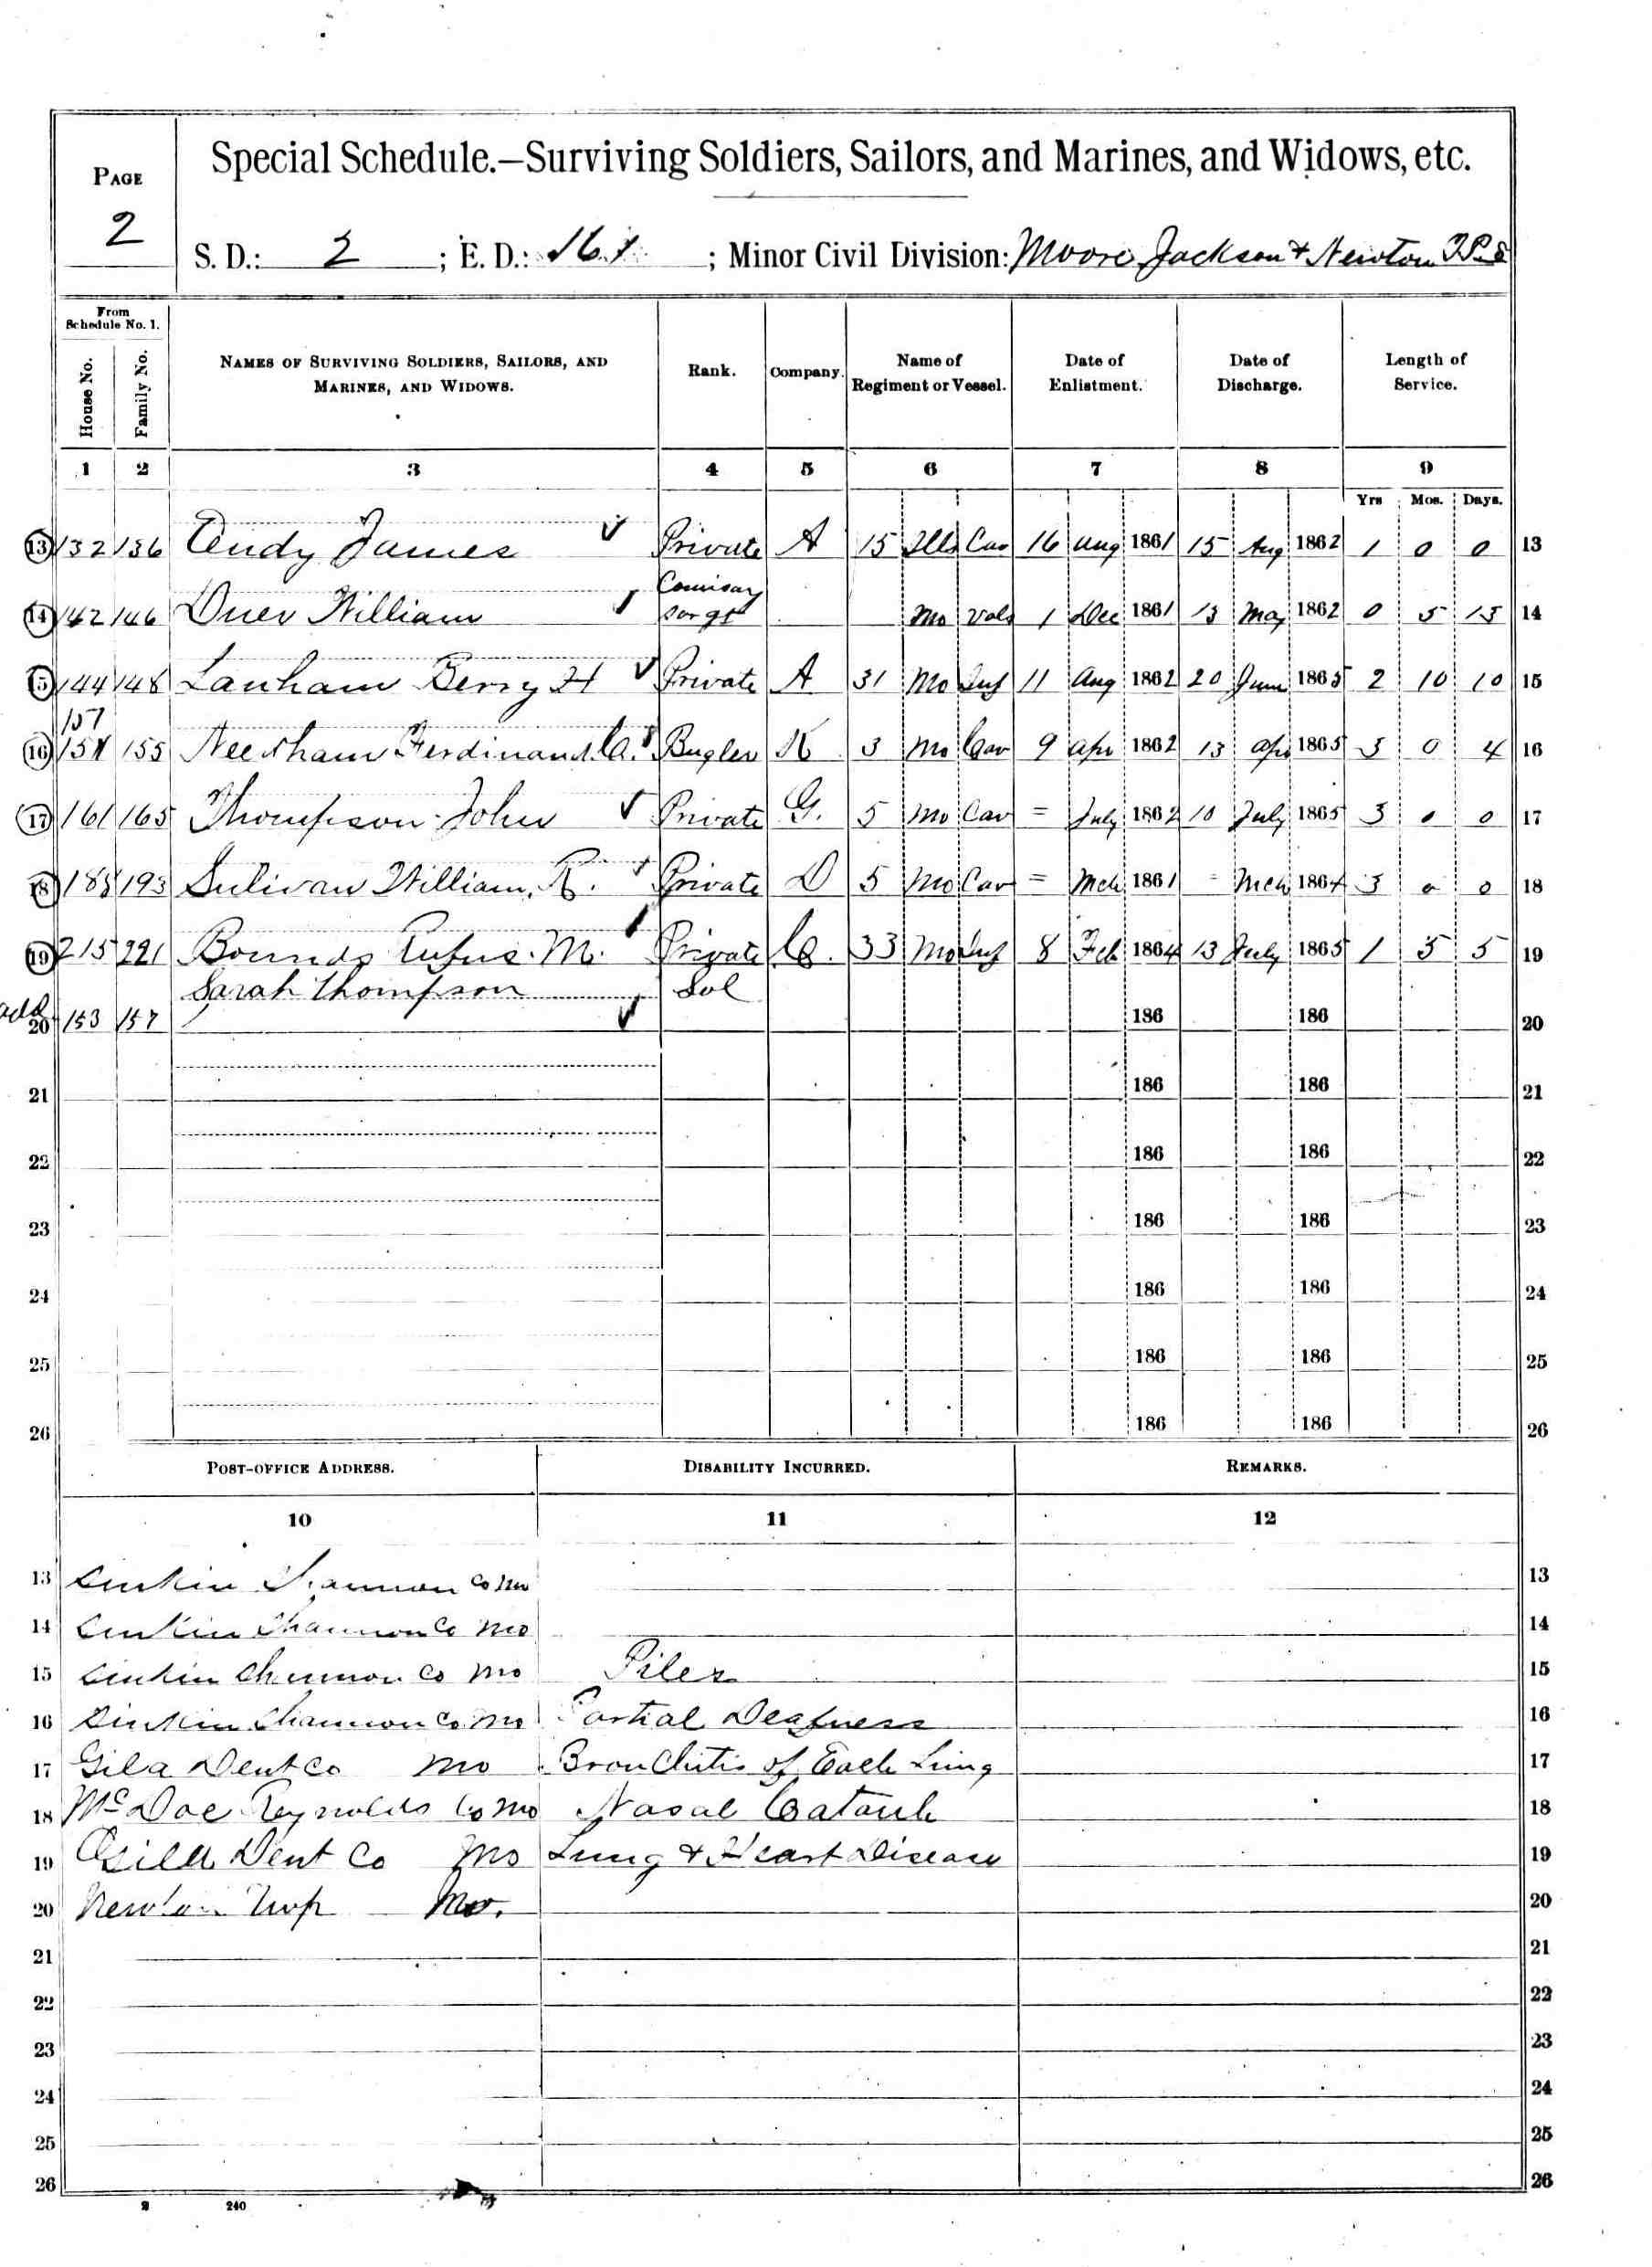 PAGE
2
Special Schedule.—Surviving Soldiers, Sailors, and Marines, and Widows, etc.
S. D.: 2 ; E. D.: 161 ; Minor Civil Division: Moore Jackson & Newton
From Schedule No. 1.
House No. Family No. NAMES OF SURVIVING SOLDIERS, SAILORS, AND MARINES, AND WIDOWS. Rank. Company. Name of Regiment or Vessel. Date of Enlistment. Date of Discharge. Length of Service.
1 2 3 4 5 6 7 8 9
Yrs Mos. Days.
13 132 136 James Private A 15 Ills Cav 16 Aug 1861 15 Aug 1862 1 0 0 13
Comisary
14 142 146 William Sargt Mo Vols 1 Dec 1861 13 May 1862 0 5 13 14
15 144 148 Lanham Berry H Private A 31 Mo Inf 11 Aug 1862 20 June 1865 2 10 10 15
157
16 151 155 Needham Ferdinand A. Bugler K 3 Mo Cav 9 Apr 1862 13 Apr 1865 3 0 4 16
17 161 165 Thompson John Private G. 5 Mo Cav = July 1862 10 July 1865 3 0 0 17
18 188 193 Sulivan William R. Private D 5 Mo Cav = Mch 1861 - Mch 1864 3 0 0 18
19 215 221 Bounds Rufus M. Private 33 Mo Inf 8 Feb 1864 13 July 1865 1 5 5 19
Sarah Thompson Sol
add
20 153 157 186 186 20
21 186 186 21
22 186 186 22
23 186 186 23
24 186 186 24
25 186 186 25
26 186 186 26
POST-OFFICE ADDRESS. DISABILITY INCURRED. REMARKS.
10 11 12
13 Shannon Co Mo 13
14 Shannon Co Mo 14
15 Shannon Co Mo Piles 15
16 Shannon Co Mo Partial Deafness 16
17 Gila Dent Co Mo Bronchitis of Each Lung 17
18 McDoe Reynolds Co Mo Nasal Catarrh 18
19 Gila Dent Co Mo Lung & Heart Disease 19
20 Newton Twp Mo. 20
21 21
22 22
23 23
24 24
25 25
26 26
2 240